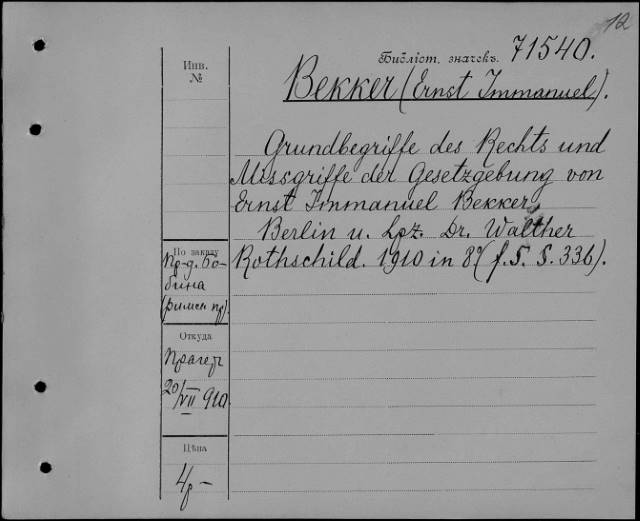 12
Библіот. значекъ. 71540.
Инв.
№
Bekker (Ernst Immanuel).
Grundbegriffe des Rechts und
Missgriffe der Gesetzgebung von
Ernst Immanuel Bekker.
Berlin u. Lpz. Dr. Walther
Rothschild. 1910 in 8º (f. S. S. 336).
По заказу
Пр-д. Бо-
бина
(римск пр).
Откуда
Прагеръ
20/VII 910
Цѣна
4р-